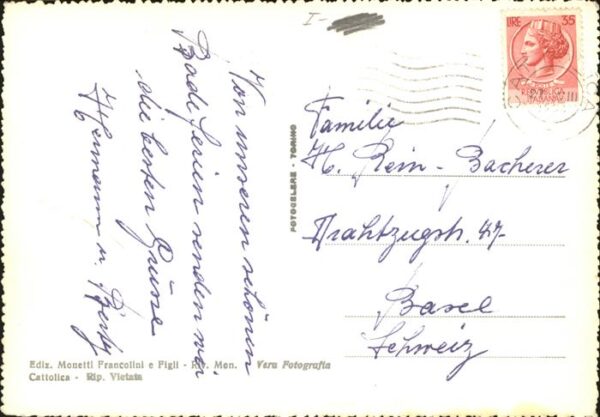 I-
LIRE 35
REPVBBLICA
ITALIANA
Von unseren schönen
Bade ferien senden wir
die besten Grüsse
Hermann u.
Familie
H. Rein - Bacherer
Drahtzugstr. 47
Basel
Schweiz
FOTOCELERE - TORINO
Ediz. Monetti Francolini e Figli - Rip. Men. Vera Fotografia
Cattolica - Rip. Vietata